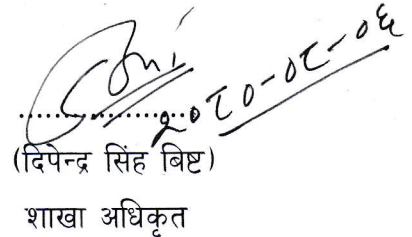 २०८०-०८-०६
(दिपेन्द्र सिंह बिष्ट)
शाखा अधिकृत